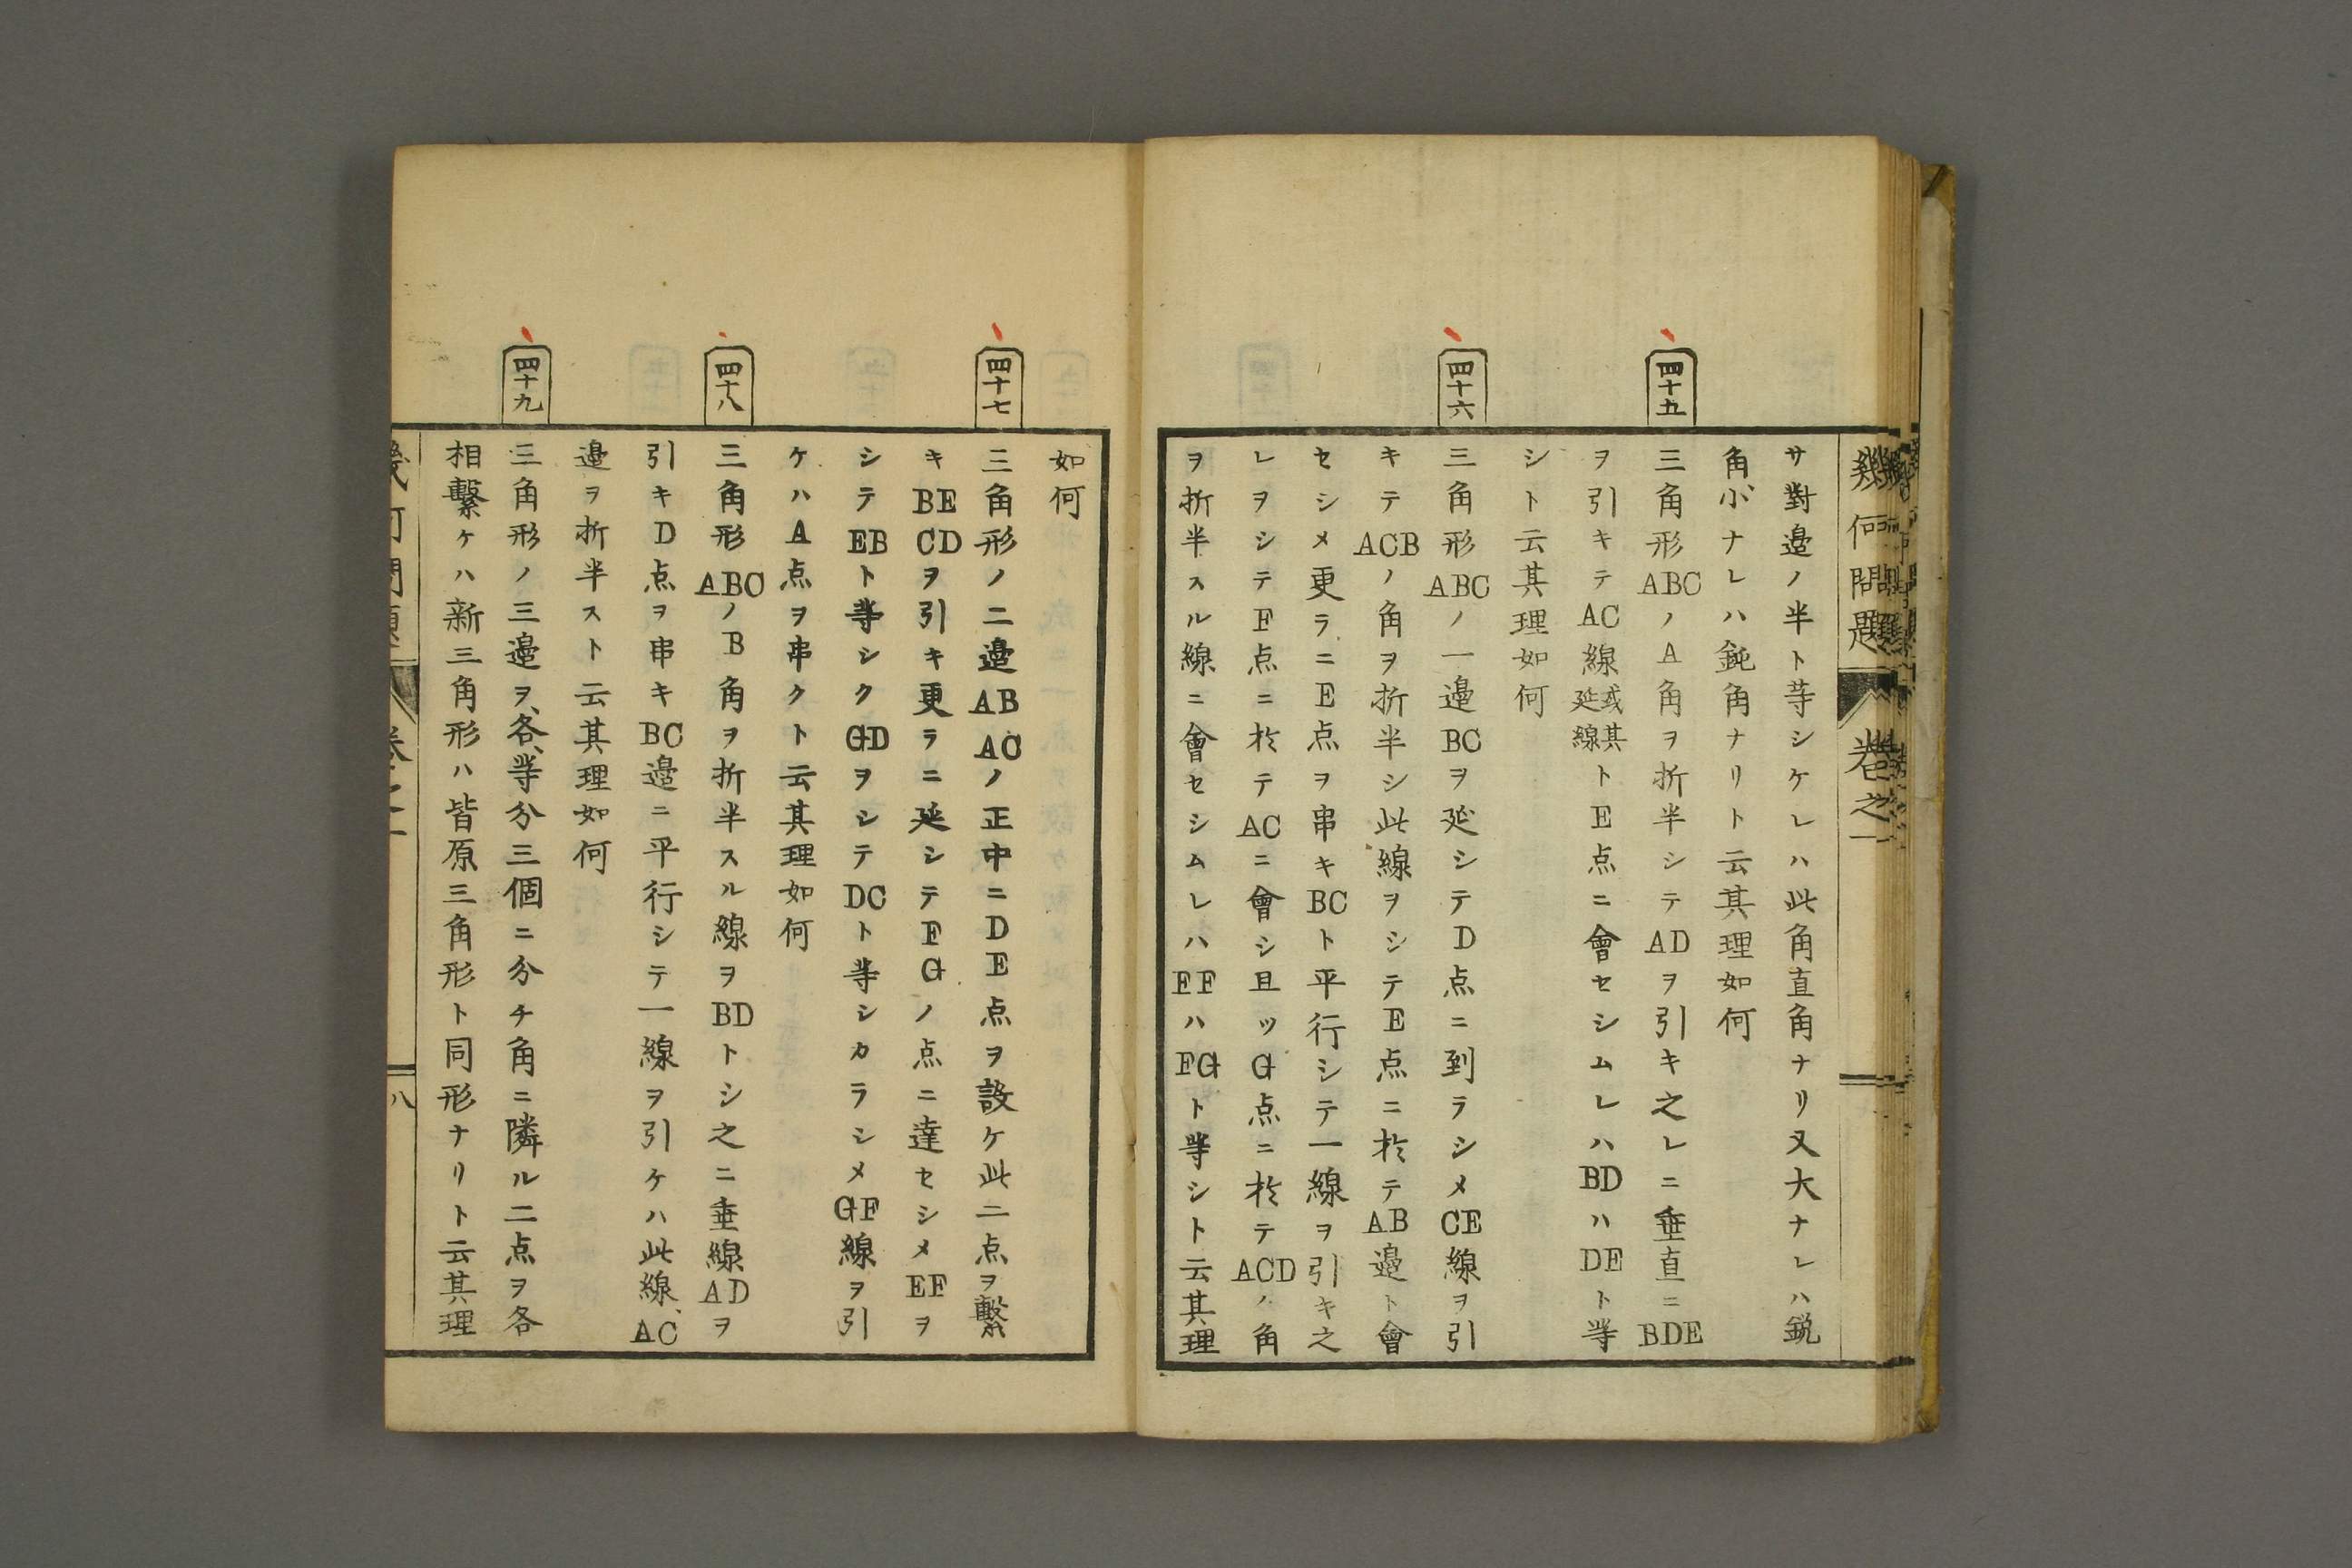 幾何問題 卷之一
サ對邉ノ半ト䓁シケレハ此角直角ナリ又大ナレハ鋭
角小ナレハ鈍角ナリト云其理如何
四十五
三角形ABCノA角ヲ折半シテADヲ引キ之レニ垂直ニBDE
ヲ引キテAC線或其延線トE点ニ會セシムレハBDハDEト䓁
シト云其理如何
四十六
三角形ABCノ一邉BCヲ延シテD点ニ到ラシメCE線ヲ引
キテACBノ角ヲ折半シ此線ヲシテE点ニ於テAB邉ト會
セシメ更ラニE点ヲ串キBCト平行シテ一線ヲ引キ之
レヲシテF点ニ於テACニ會シ且ッG点ニ於テACDノ角
ヲ折半スル線ニ會セシムレハEFハFGト䓁シト云其理
如何
四十七
三角形ノ二邉AB ACノ正中ニD E点ヲ設ケ此二点ヲ繫
キBE CDヲ引キ更ラニ延シテF Gノ点ニ達セシメEFヲ
シテEBト䓁シクGDヲシテDCト䓁シカラシメGF線ヲ引
ケハA点ヲ串クト云其理如何
四十八
三角形ABCノB角ヲ折半スル線ヲBDトシ之ニ垂線ADヲ
引キD点ヲ串キBC邉ニ平行シテ一線ヲ引ケハ此線、AC
邉ヲ折半スト云其理如何
四十九
三角形ノ三邉ヲ、各、䓁分三個ニ分チ角ニ隣ル二点ヲ各
相繫ケハ新三角形ハ皆原三角形ト同形ナリト云其理
幾何問題 卷之一 八